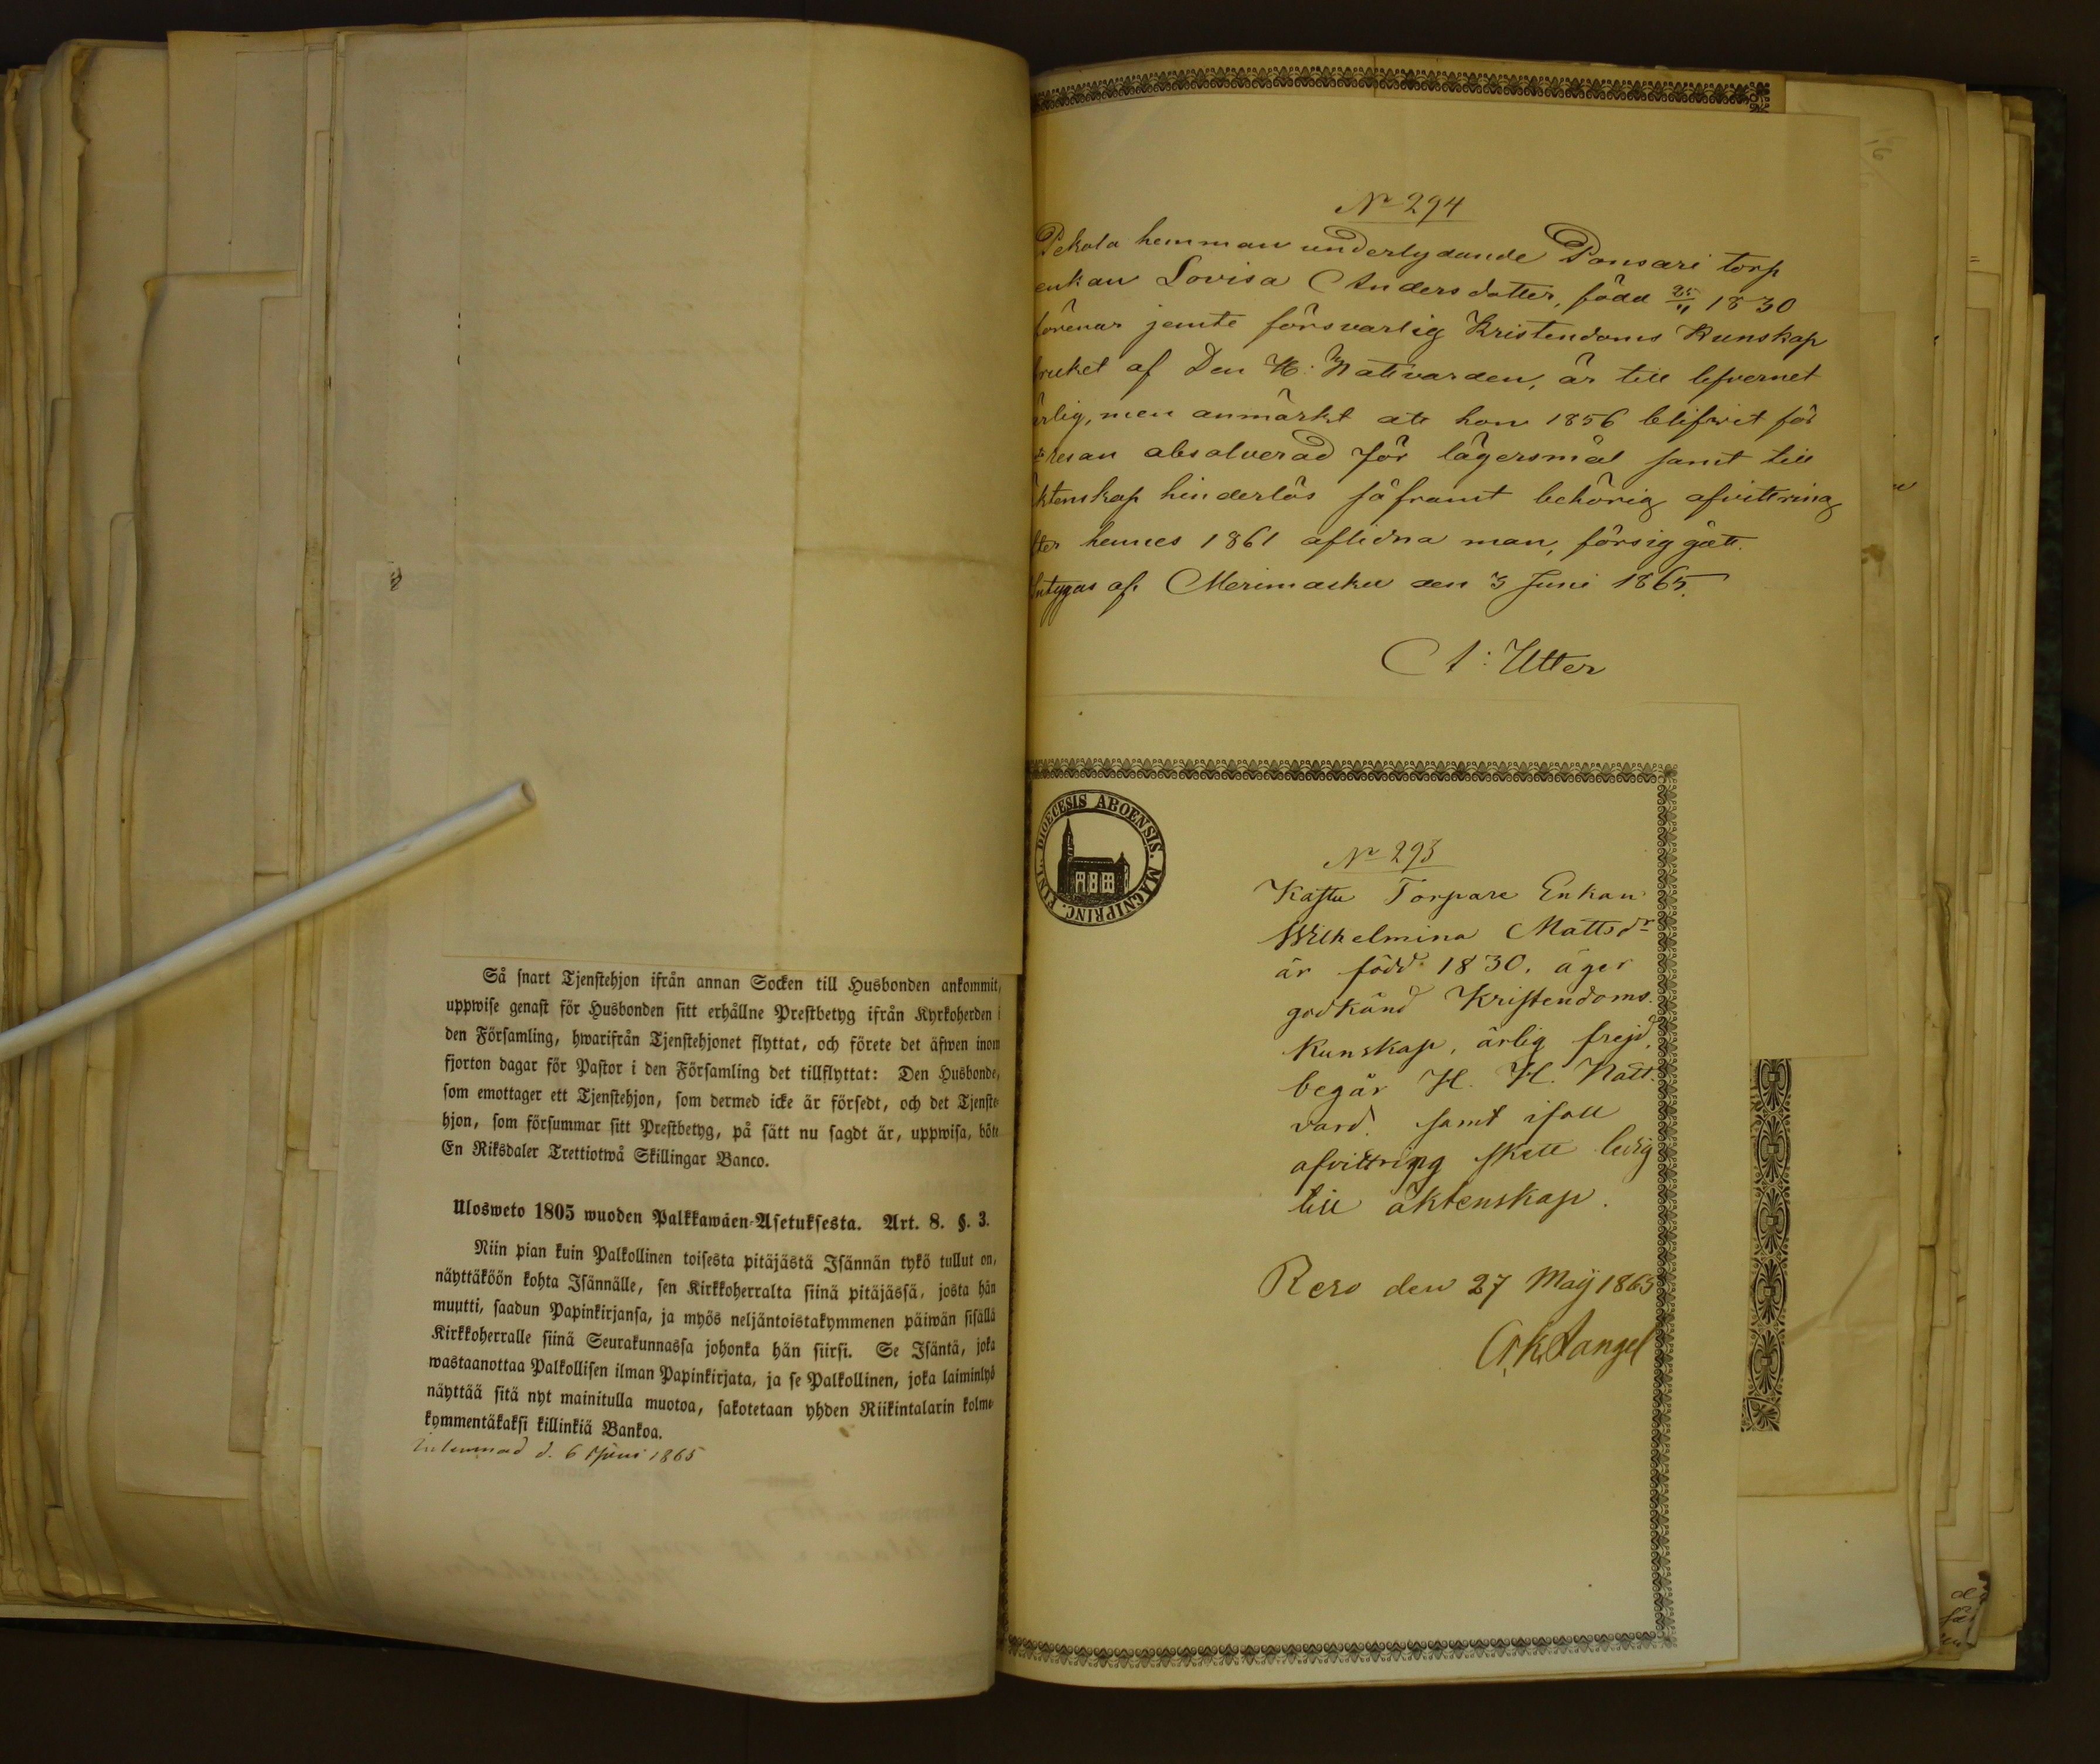 Så snart Tjenstehjon ifrån annan Socken till Husbonden ankommit,
uppwise genast för Husbonden sitt erhållne Prestbetyg ifrån Kyrkoherden i
den Församling, hwarifrån Tjenstehjonet flyttat, och förete det äfwen inom
fjorton dagar för Pastor i den Församling det tillflyttat: Den Husbonde,
som emottager ett Tjenstehjon, som dermed icke är försedt, och det Tjenste-
hjon, som försummar sitt Prestbetyg, på sätt nu sagdt är, uppwisa, böte
En Riksdaler Trettiotwå Skillingar Banco.
Ulosweto 1805 wuoden Palkkawäen-Asetuksesta. Art. 8. §. 3.
Niin pian kuin Palkollinen toisesta pitäjästä Isännän tykö tullut on,
näyttäköön kohta Isännälle, sen Kirkkoherralta siinä pitäjässä, josta hän
muutti, saadun Papinkirjansa, ja myös neljäntoistakymmenen päiwän sisällä
Kirkkoherralle siinä Seurakunnassa johonka hän siirsi. Se Isäntä, joka
wastaanottaa Palkollisen ilman Papinkirjata, ja se Palkollinen, joka laiminlyö
näyttää sitä nyt mainitulla muotoa, sakotetaan yhden Riikintalarin kolme-
kymmentäkaksi killinkiä Bankoa.
d. 6 Juni 1865
No 294
Pekola hemman underlydande Pansari torp
enkan Lovisa Andersdotter, född 25/11 1830
förenar jemte försvarlig Kristendoms Kunskap
bruket af Den H: Nattvarden, är till lefvernet
ärlig, men anmärkt att hon 1856 blifvit för
resan absolverad för lägersmål samt till
äktenskap hinderlös såframt behörig afvittring
efter hennes 1861 aflidna man, försiggått.
Intygas af Merimasku den 3 Juni 1865.
A: Utter
FINL. DIOECESIS ABOENSIS. MAGNIPRINC.
No 293
Kastu Torpare Enkan
Wilhelmina Mattsdr
är född 1830. äger
godkänd Kristendoms
Kunskap, ärlig frejd,
begår H. H. Natt
vard. samt ifall
afvittring skett ledig
till äktenskap.
Reso den 27 Maÿ 1865